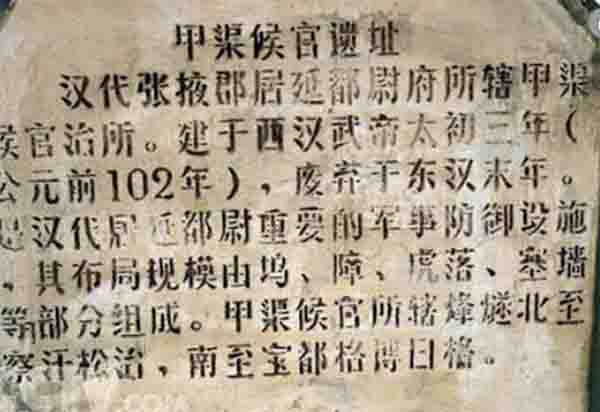 甲渠候官遗址
汉代张掖郡居延都尉府所辖甲渠
候官治所。建于西汉武帝太初三年(
公元前102年),废弃于东汉末年。
是汉代居延都尉重要的军事防御设施
,其布局规模由坞、障、虎落、塞墙
等部分组成。甲渠候官所辖烽燧北至
察汗松治,南至宝都格博日格。